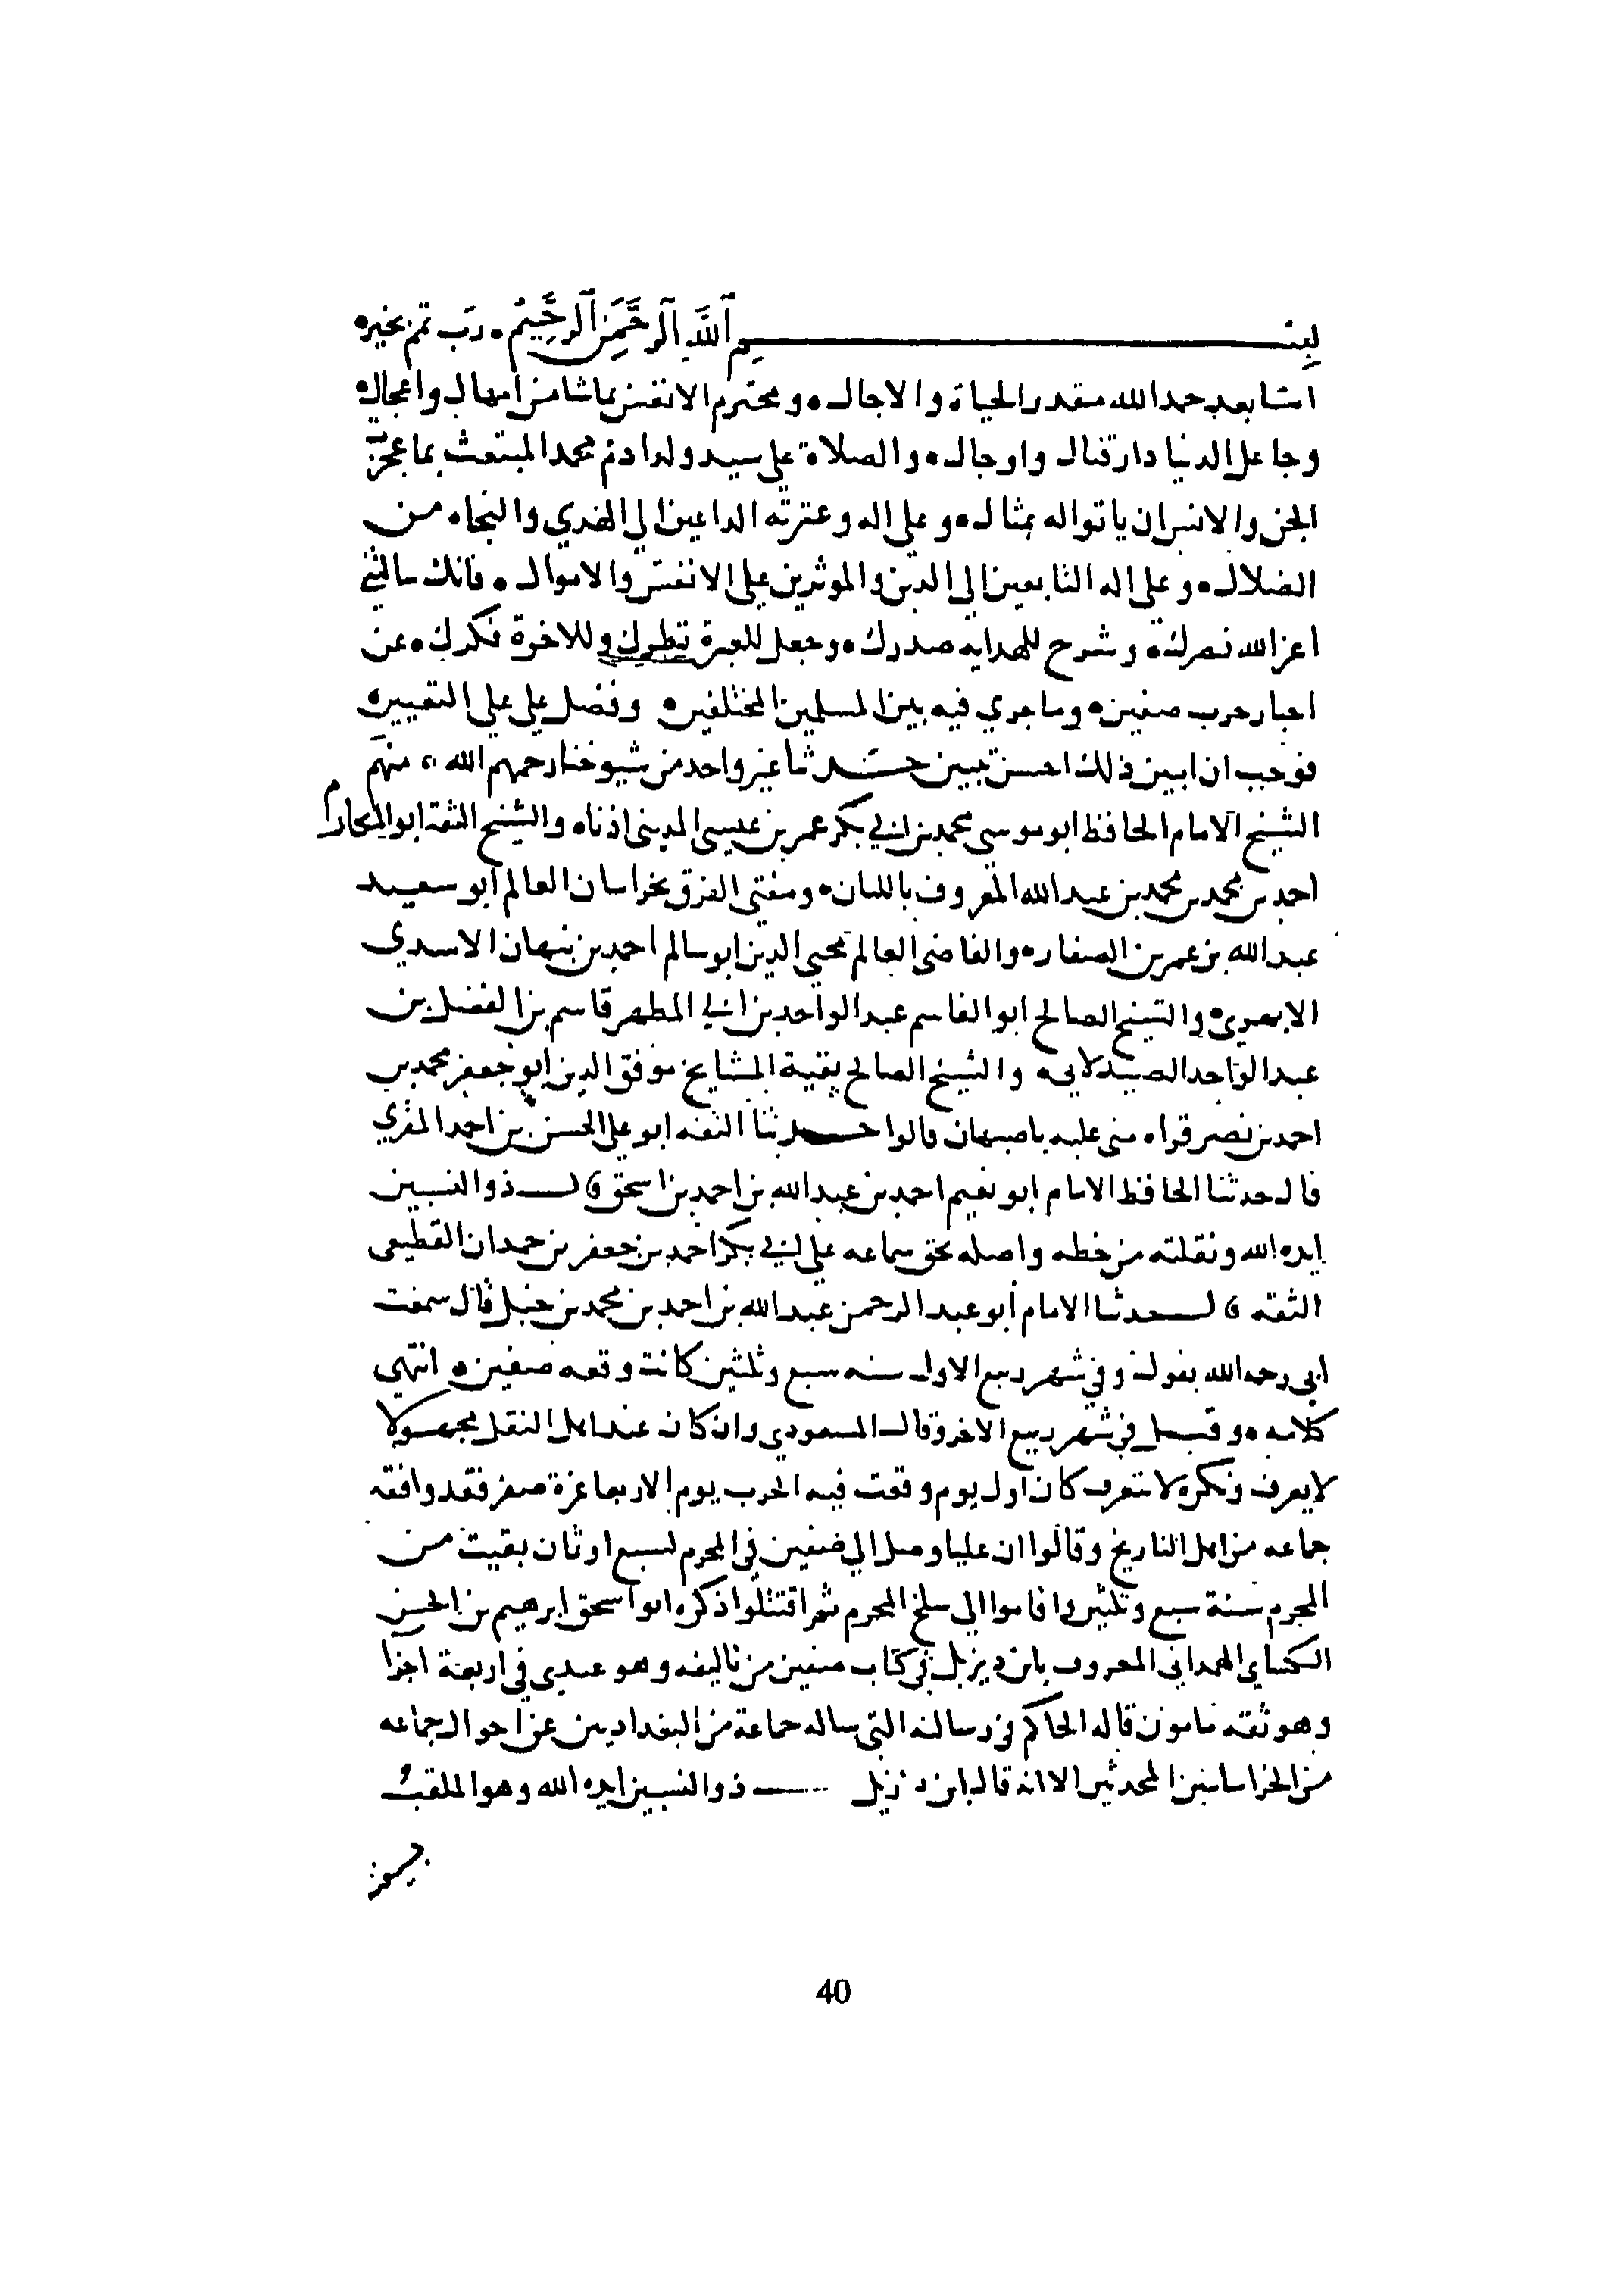 بسم الله الرحمن الرحيم رب تمم بخير
اما بعد حمد الله مقدر الحياة والاجال ومخترم الانفس بما شا من امهال واعجال
وجاعل الدنيا دار قتال واوجال والصلاة علي سيد ولد ادم محمد المبتعث بما عجز
الجن والانس ان ياتوا له بمثال وعلي اله وعترته الداعين الي الهدي والنجاه من
الضلال وعلي اله التابعين الي الدين والموثرين علي الانفس والاموال فانك سالتني
اعز الله نصرك وشرح للهدايه صدرك وجعل للعبرة نظرك وللاخرة فكرك عن
اخبار حرب صفين وما جري فيه بين المسلمين المختلفين وفضل علي علي التعيين
فوجب ان ابين ذلك احسن تبيين حدثنا غير واحد من شيوخنا رحمهم الله منهم
الشيخ الامام الحافظ ابو موسى محمد بن ابي بكر عمر بن عيسى المديني اذناه والشيخ الثقة ابو المكارم
احمد بن محمد بن محمد بن عبد الله المعروف باللبان ومفتى الفرق بخراسان العالم ابو سعيد
عبد الله بن عمر بن الصفار والقاضى العالم محيي الدين ابو سالم احمد بن بنهان الاسدي
الابهري والشيخ الصالح ابو القاسم عبد الواحد بن ابي المطهر قاسم بن الفضل بن
عبد الواحد الصيدلاني والشيخ الصالح بقية المشايخ موفق الدين ابو جعفر محمد بن
احمد بن نصر قراه منى عليه باصبهان قالوا حدثنا الثقه ابو علي الحسن بن احمد المقري
قال حدثنا الحافظ الامام ابو نعيم احمد بن عبد الله بن احمد بن اسحق قال ذو النسبين
ايده الله ونقلته من خطه واصله بحق سماعه علي ابي بكر احمد بن جعفر بن حمدان القطيعى
الثقه قال حدثنا الامام أبو عبد الرحمن عبد الله بن احمد بن محمد بن حنبل قال سمعت
ابى رحمه الله يقول وفي شهر ربيع الاول سنه سبع وثلثين كانت وقعه صفين انتهى
كلامه وقيل في شهر ربيع الاخر وقال المسعودي وان كان عند اهل النقل مجهولا
لا يعرف ونكره لا تتعرف كان اول يوم وقعت فيه الحرب يوم الاربعا غرة صفر فقد وافقه
جماعه من اهل التاريخ وقالوا ان عليا وصل الي صفين في المحرم لسبع او ثمان بقيت من
المحرم سنة سبع وثلثين واقاموا الي سلخ المحرم ثم اقتتلوا ذكره ابو اسحق ابرهيم بن الحسن
الكساي الهمداني المعروف بابن ديزيل في كتاب صفين من تاليفه وهو عندي في اربعة اجزا
وهو ثقه مامون قاله الحاكم في رسالته التي ساله جماعة من البغداديين عن احوال جماعه
من الخراسانين المحدثين الا انه قال ابن ديزيل ذو النسبين ايده الله وهو الملقب
40